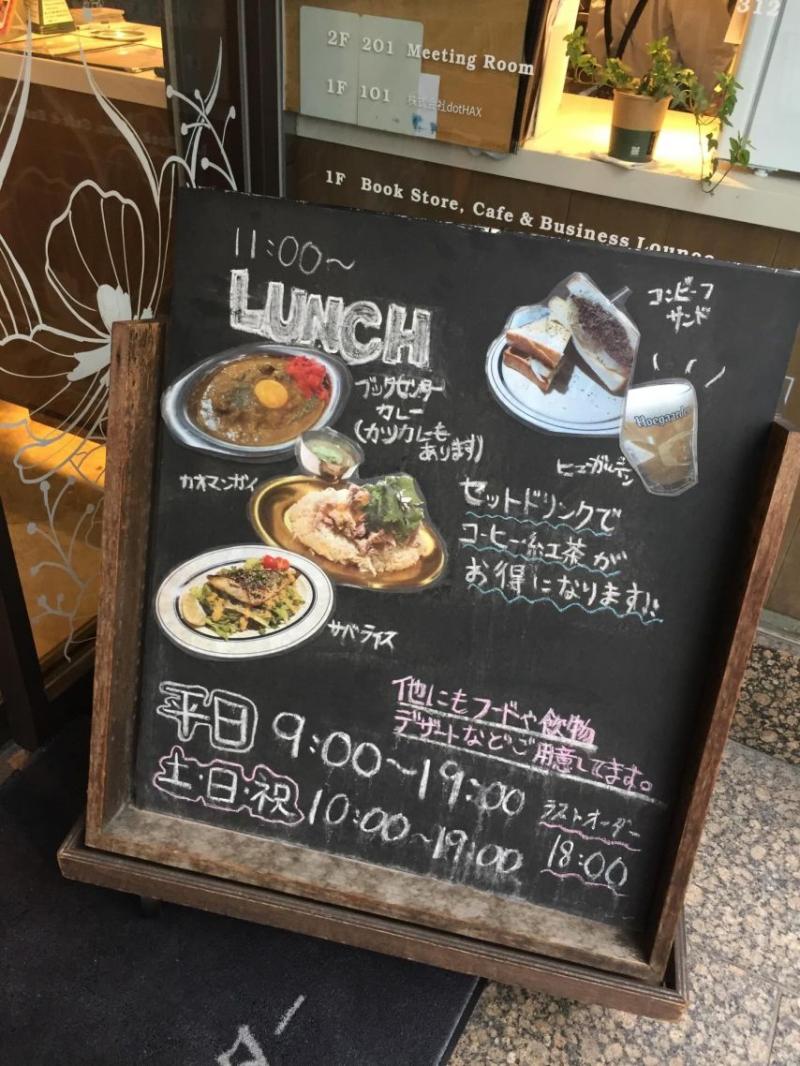 2F 201 Meeting Room
312
1F 101 株式会社dotHAX
1F Book Store, Cafe & Business Lounge
11:00～
LUNCH
コンビーフ
サンド
ブックセンター
カレー
(カツカレーも
あります)
Hoegaarden
ヒューガルデン
カオマンガイ
セットドリンクで
コーヒー・紅茶が
お得になります!!
サバライス
他にもフードや飲物
デザートなどご用意してます。
平日 9:00～19:00
土・日・祝 10:00～19:00
ラストオーダー
18:00